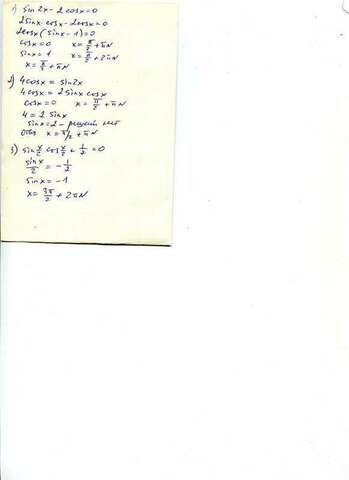 1) sin2x - 2cosx = 0
2sinx·cosx - 2cosx = 0
2cosx (sinx - 1) = 0
cosx = 0 x = π/2 + πN
sinx = 1 x = π/2 + 2πN
x = π/2 + πN
2) 4cosx = sin2x
4cosx = 2sinx cosx
cosx = 0 x = π/2 + πN
4 = 2 sinx
sinx = 2 - решений нет
Отв x = π/2 + πN
3) sin x/2 cos x/2 + 1/2 = 0
sinx/2 = -1/2
sinx = -1
x = 3π/2 + 2πN